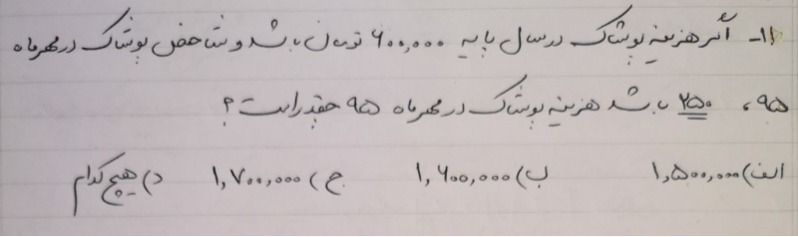 ۱۱- اگر هزینه پوشاک در سال پایه ۶۰۰,۰۰۰ تومان باشد و شاخص پوشاک در مهرماه
۹۵، ۲۵۰ باشد هزینه پوشاک در مهرماه ۹۵ چقدر است؟
الف) ۱,۵۰۰,۰۰۰ ب) ۱,۶۰۰,۰۰۰ ج) ۱,۷۰۰,۰۰۰ د) هیچ کدام